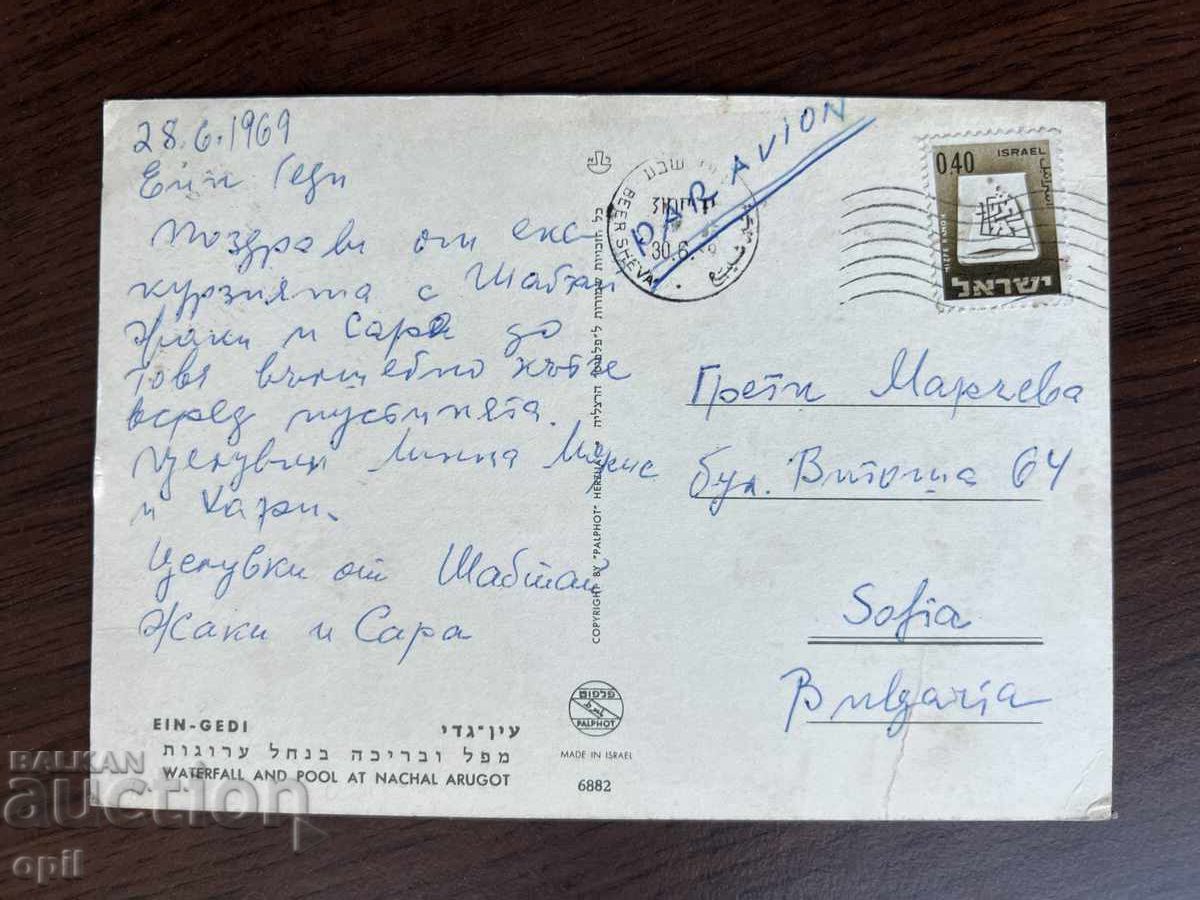 28.6.1969
Ейн Геди
Поздрави от екс-
курзията с Шабтай
Жаки и Сара до
това вълшебно кътче
всред пустинята.
Целувки Лина
и Хари.
Целувки от Шабтай
Жаки и Сара
EIN-GEDI עין־גדי
מפל ובריכה בנחל ערוגות
WATERFALL AND POOL AT NACHAL ARUGOT
כל הזכויות שמורות ל"פלפוט" הרצליה
COPYRIGHT BY "PALPHOT" HERZLIA
פלפוט
PALPHOT
MADE IN ISRAEL
6882
PAR AVION
BEER SHEVA
30.6.
0.40 ISRAEL
ישראל
Грети Марчева
бул. Витоша 64
Sofia
Bulgaria
BALKAN
auction
opil